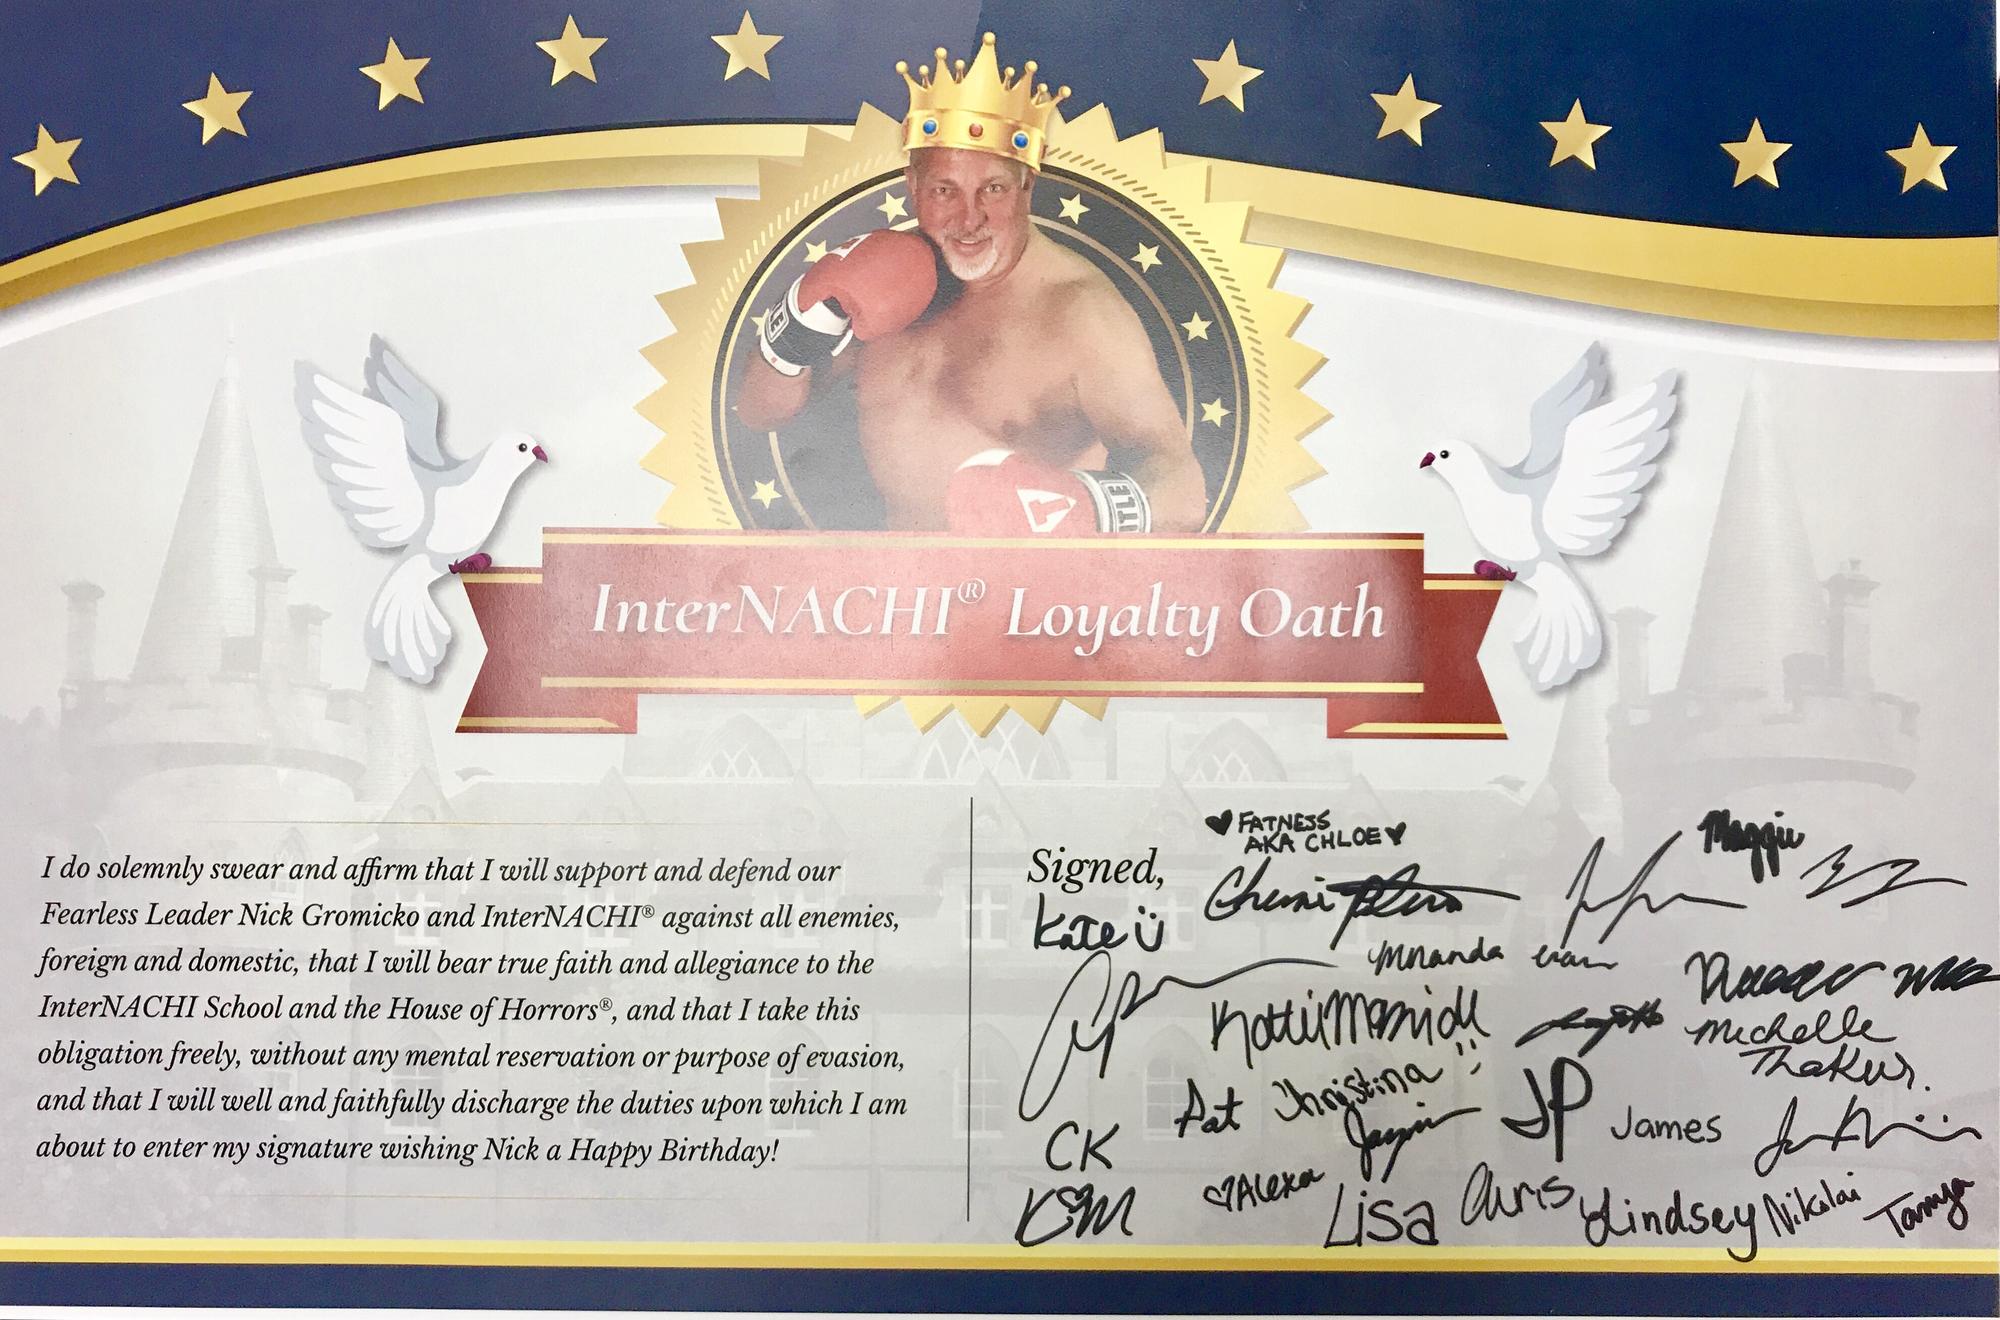 TITLE
InterNACHI® Loyalty Oath
I do solemnly swear and affirm that I will support and defend our
Fearless Leader Nick Gromicko and InterNACHI® against all enemies,
foreign and domestic, that I will bear true faith and allegiance to the
InterNACHI School and the House of Horrors®, and that I take this
obligation freely, without any mental reservation or purpose of evasion,
and that I will well and faithfully discharge the duties upon which I am
about to enter my signature wishing Nick a Happy Birthday!
Signed,
♥ FATNESS
AKA CHLOE ♥
Maggie
Kate
Michelle
Thakur.
Pat
Christina
JP
James
CK
Alexa
Lisa
Chris
Lindsey
Nikolai
Tamya